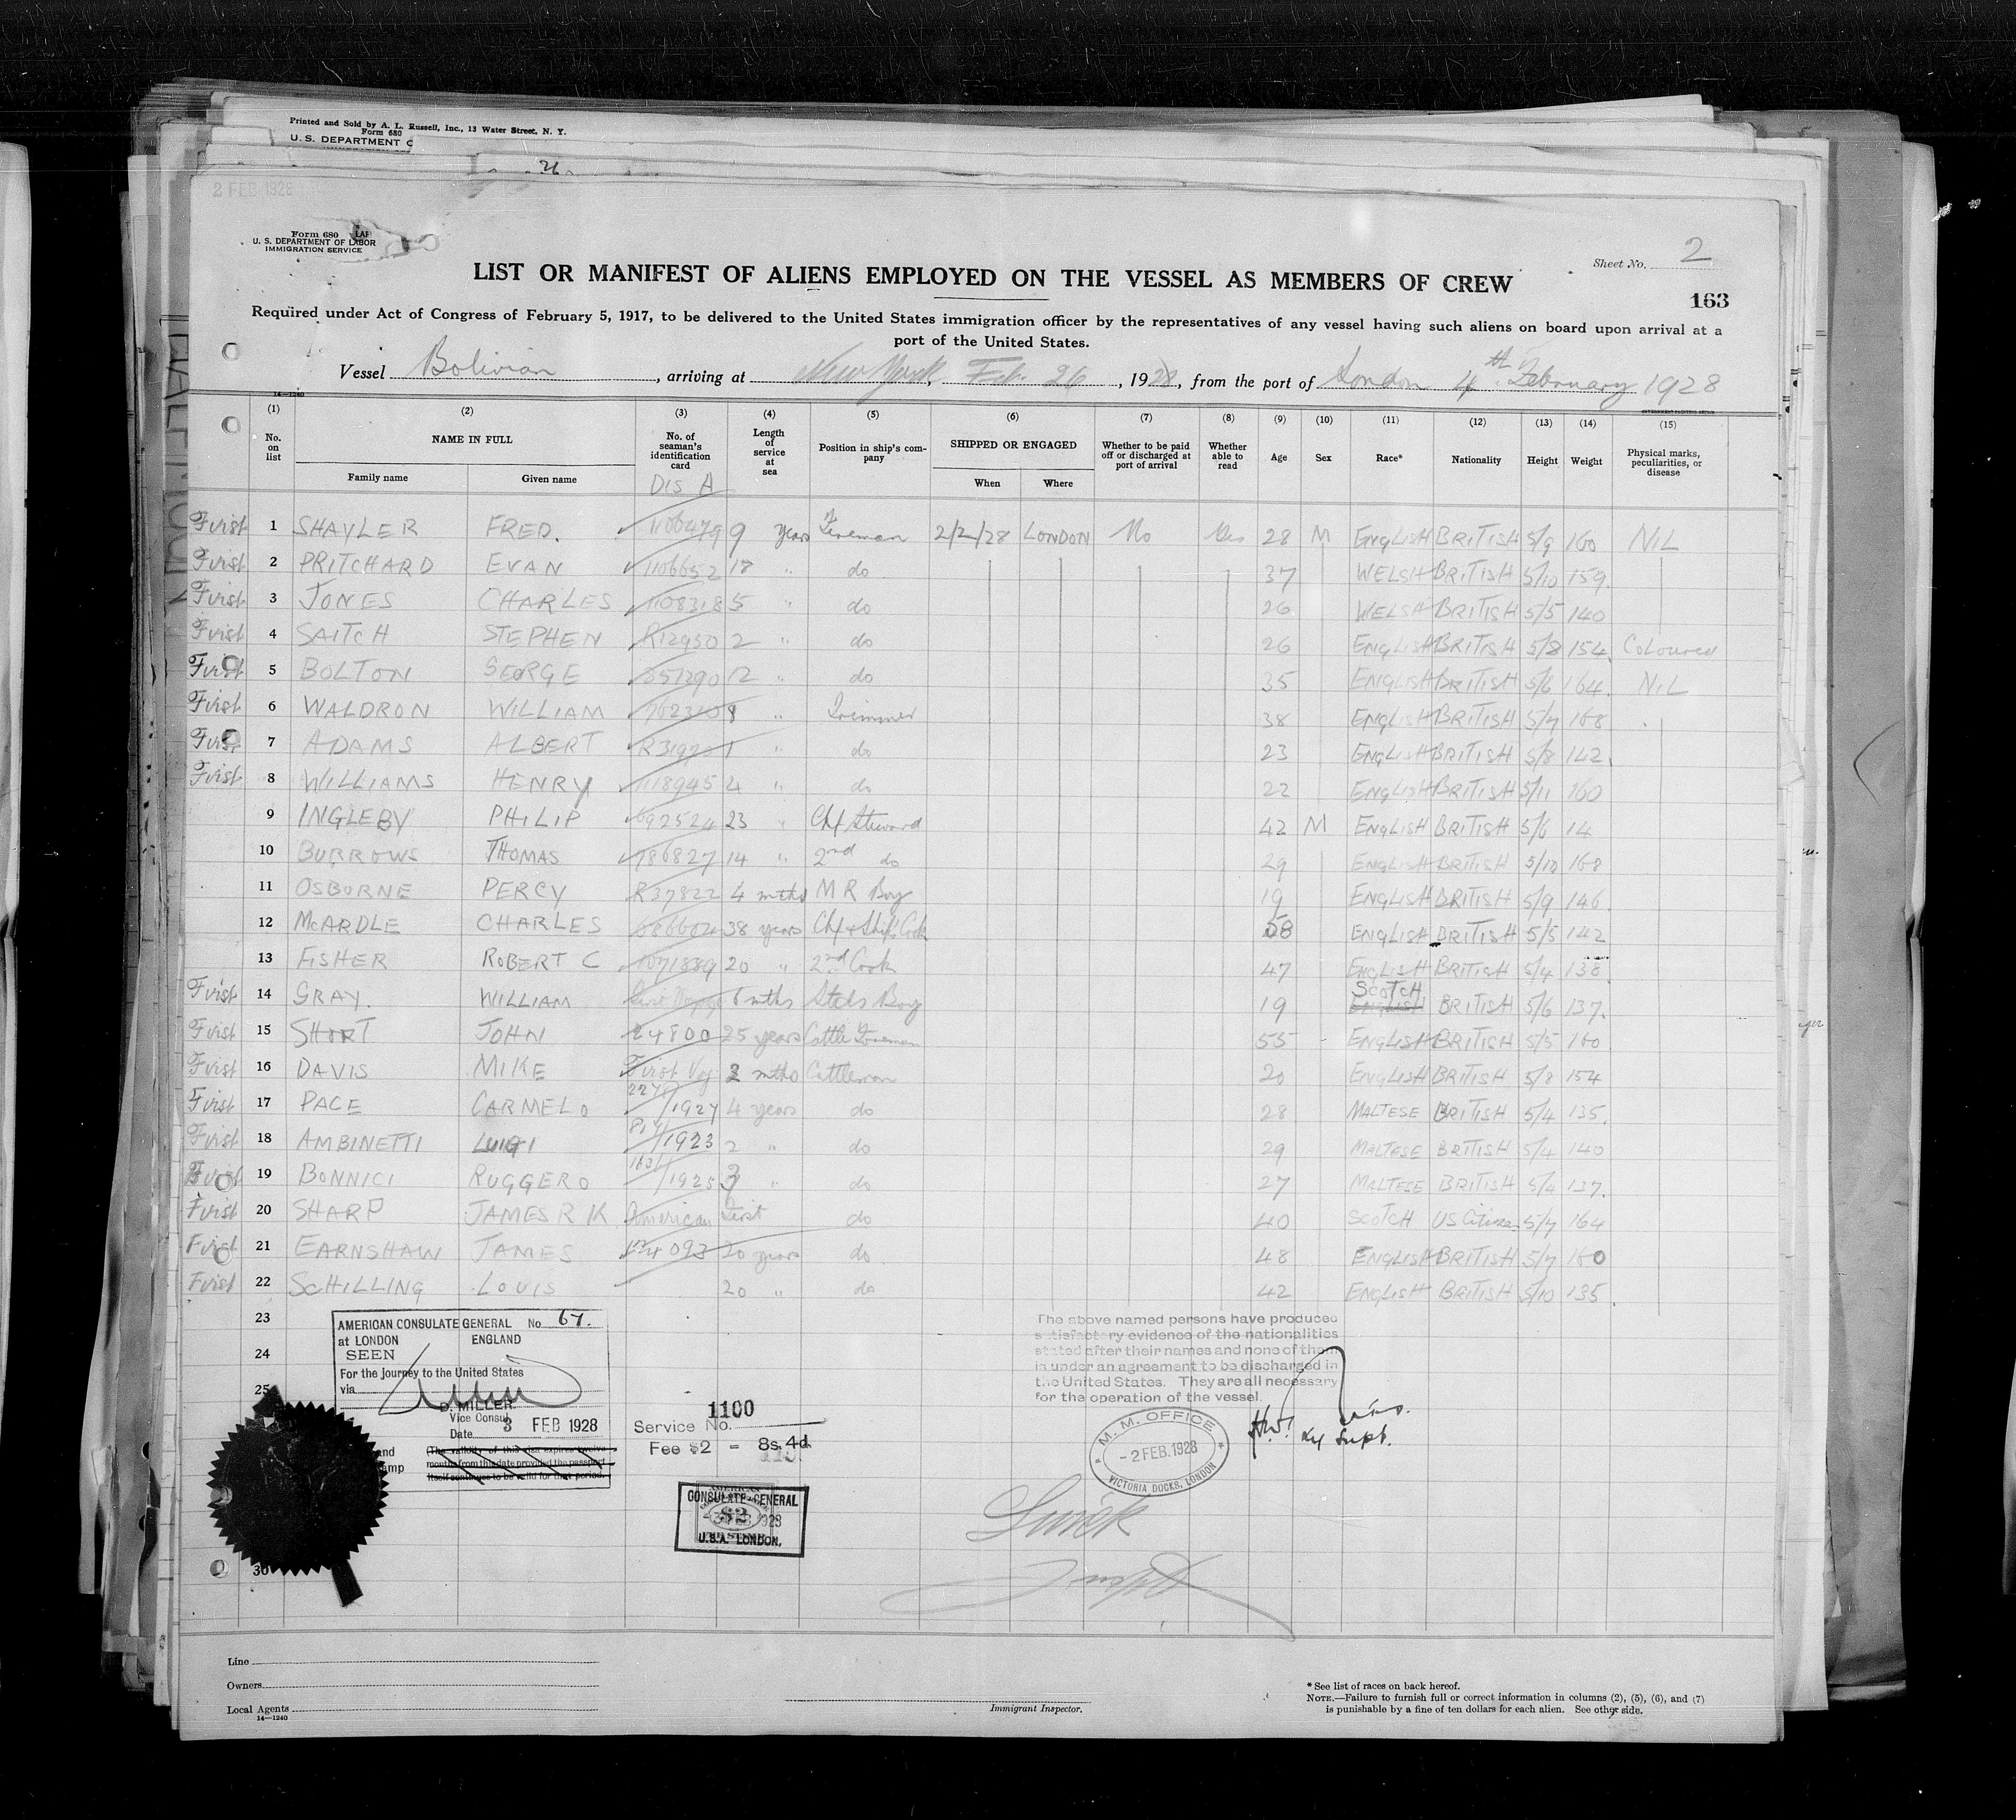 Printed and Sold by A. L. Russell, Inc., 13 Water Street, N. Y.
Form 680
U. S. DEPARTMENT
2 FEB 1928
Form 680
U. S. DEPARTMENT OF LABOR
IMMIGRATION SERVICE
Sheet No. 2
LIST OR MANIFEST OF ALIENS EMPLOYED ON THE VESSEL AS MEMBERS OF CREW
163
Required under Act of Congress of February 5, 1917, to be delivered to the United States immigration officer by the representatives of any vessel having such aliens on board upon arrival at a
port of the United States.
Vessel Bolivian, arriving at New York, Feb. 26, 1928, from the port of London 4th February 1928
14—1240
(1) (2) (3) (4) (5) (6) (7) (8) (9) (10) (11) (12) (13) (14) (15)
No. on list NAME IN FULL Family name Given name No. of seaman's identification card Length of service at sea Position in ship's company SHIPPED OR ENGAGED When Where Whether to be paid off or discharged at port of arrival Whether able to read Age Sex Race* Nationality Height Weight Physical marks, peculiarities, or disease
Dis A
First 1 SHAYLER FRED. 1106479 9 years Fireman 2/2/28 LONDON No Yes 28 M ENGLISH BRITISH 5/9 160 NIL
First 2 PRITCHARD EVAN 1106652 18 " do 37 WELSH BRITISH 5/10 159.
First 3 JONES CHARLES 1108318 5 " do 26 WELSH BRITISH 5/5 140
First 4 SAITCH STEPHEN R12950 2 " do 26 ENGLISH BRITISH 5/8 154. Coloured
First 5 BOLTON GEORGE 851390 12 " do 35 ENGLISH BRITISH 5/6 164. NIL
First 6 WALDRON WILLIAM 762310 8 " Trimmer 38 ENGLISH BRITISH 5/7 168
First 7 ADAMS ALBERT 1 " do 23 ENGLISH BRITISH 5/8 142.
First 8 WILLIAMS HENRY 1118945 4 " do 22 ENGLISH BRITISH 5/11 160
9 INGLEBY PHILIP 692524 23 " Chf Steward 42 M ENGLISH BRITISH 5/6 14
10 BURROWS THOMAS 786827 14 " 2nd do 29 ENGLISH BRITISH 5/10 168
11 OSBORNE PERCY R37822 4 mths M R Boy 19 ENGLISH BRITISH 5/9 146.
12 McARDLE CHARLES 686604 38 years Chf & Ships Cook 58 ENGLISH BRITISH 5/5 142
13 FISHER ROBERT C 1071889 20 " 2nd Cook 47 ENGLISH BRITISH 5/4 138
First 14 GRAY. WILLIAM First Voyage 6 mths Stds Boy 19 SCOTCH ENGLISH BRITISH 5/6 137.
First 15 SHORT JOHN 24800 25 years Cattle Foreman 55 ENGLISH BRITISH 5/5 160
First 16 DAVIS MIKE First Voy 3 mths Cattleman 20 ENGLISH BRITISH 5/8 154
First 17 PACE CARMELO /1927 4 years do 28 MALTESE BRITISH 5/4 135.
First 18 AMBINETTI LUIGI /1923 2 " do 29 MALTESE BRITISH 5/4 140
First 19 BONNICI RUGGERO /1925 3 " do 27 MALTESE BRITISH 5/4 137.
First 20 SHARP JAMES R K American First do 40 SCOTCH US Citizen 5/7 164
First 21 EARNSHAW JAMES 20 years do 48 ENGLISH BRITISH 5/7 160
First 22 SCHILLING LOUIS 20 " do 42 ENGLISH BRITISH 5/10 135.
23
24
25
30
AMERICAN CONSULATE GENERAL No. 67.
at LONDON ENGLAND
SEEN
For the journey to the United States
via
D. MILLER.
Vice Consul
Date 3 FEB 1928
(The validity of this visa expires twelve
months from this date provided the passport
itself continues to be valid for that period.
Service No. 1100
Fee $2 = 8s. 4d
CONSULATE-GENERAL
$2
U.S.A. LONDON.
The above named persons have produced
satisfactory evidence of the nationalities
stated after their names and none of them
is under an agreement to be discharged in
the United States. They are all necessary
for the operation of the vessel.
M. M. OFFICE
- 2 FEB. 1928
VICTORIA DOCKS, LONDON
Supt.
Line
Owners
Local Agents
14—1240
Immigrant Inspector.
* See list of races on back hereof.
NOTE.—Failure to furnish full or correct information in columns (2), (5), (6), and (7)
is punishable by a fine of ten dollars for each alien. See other side.